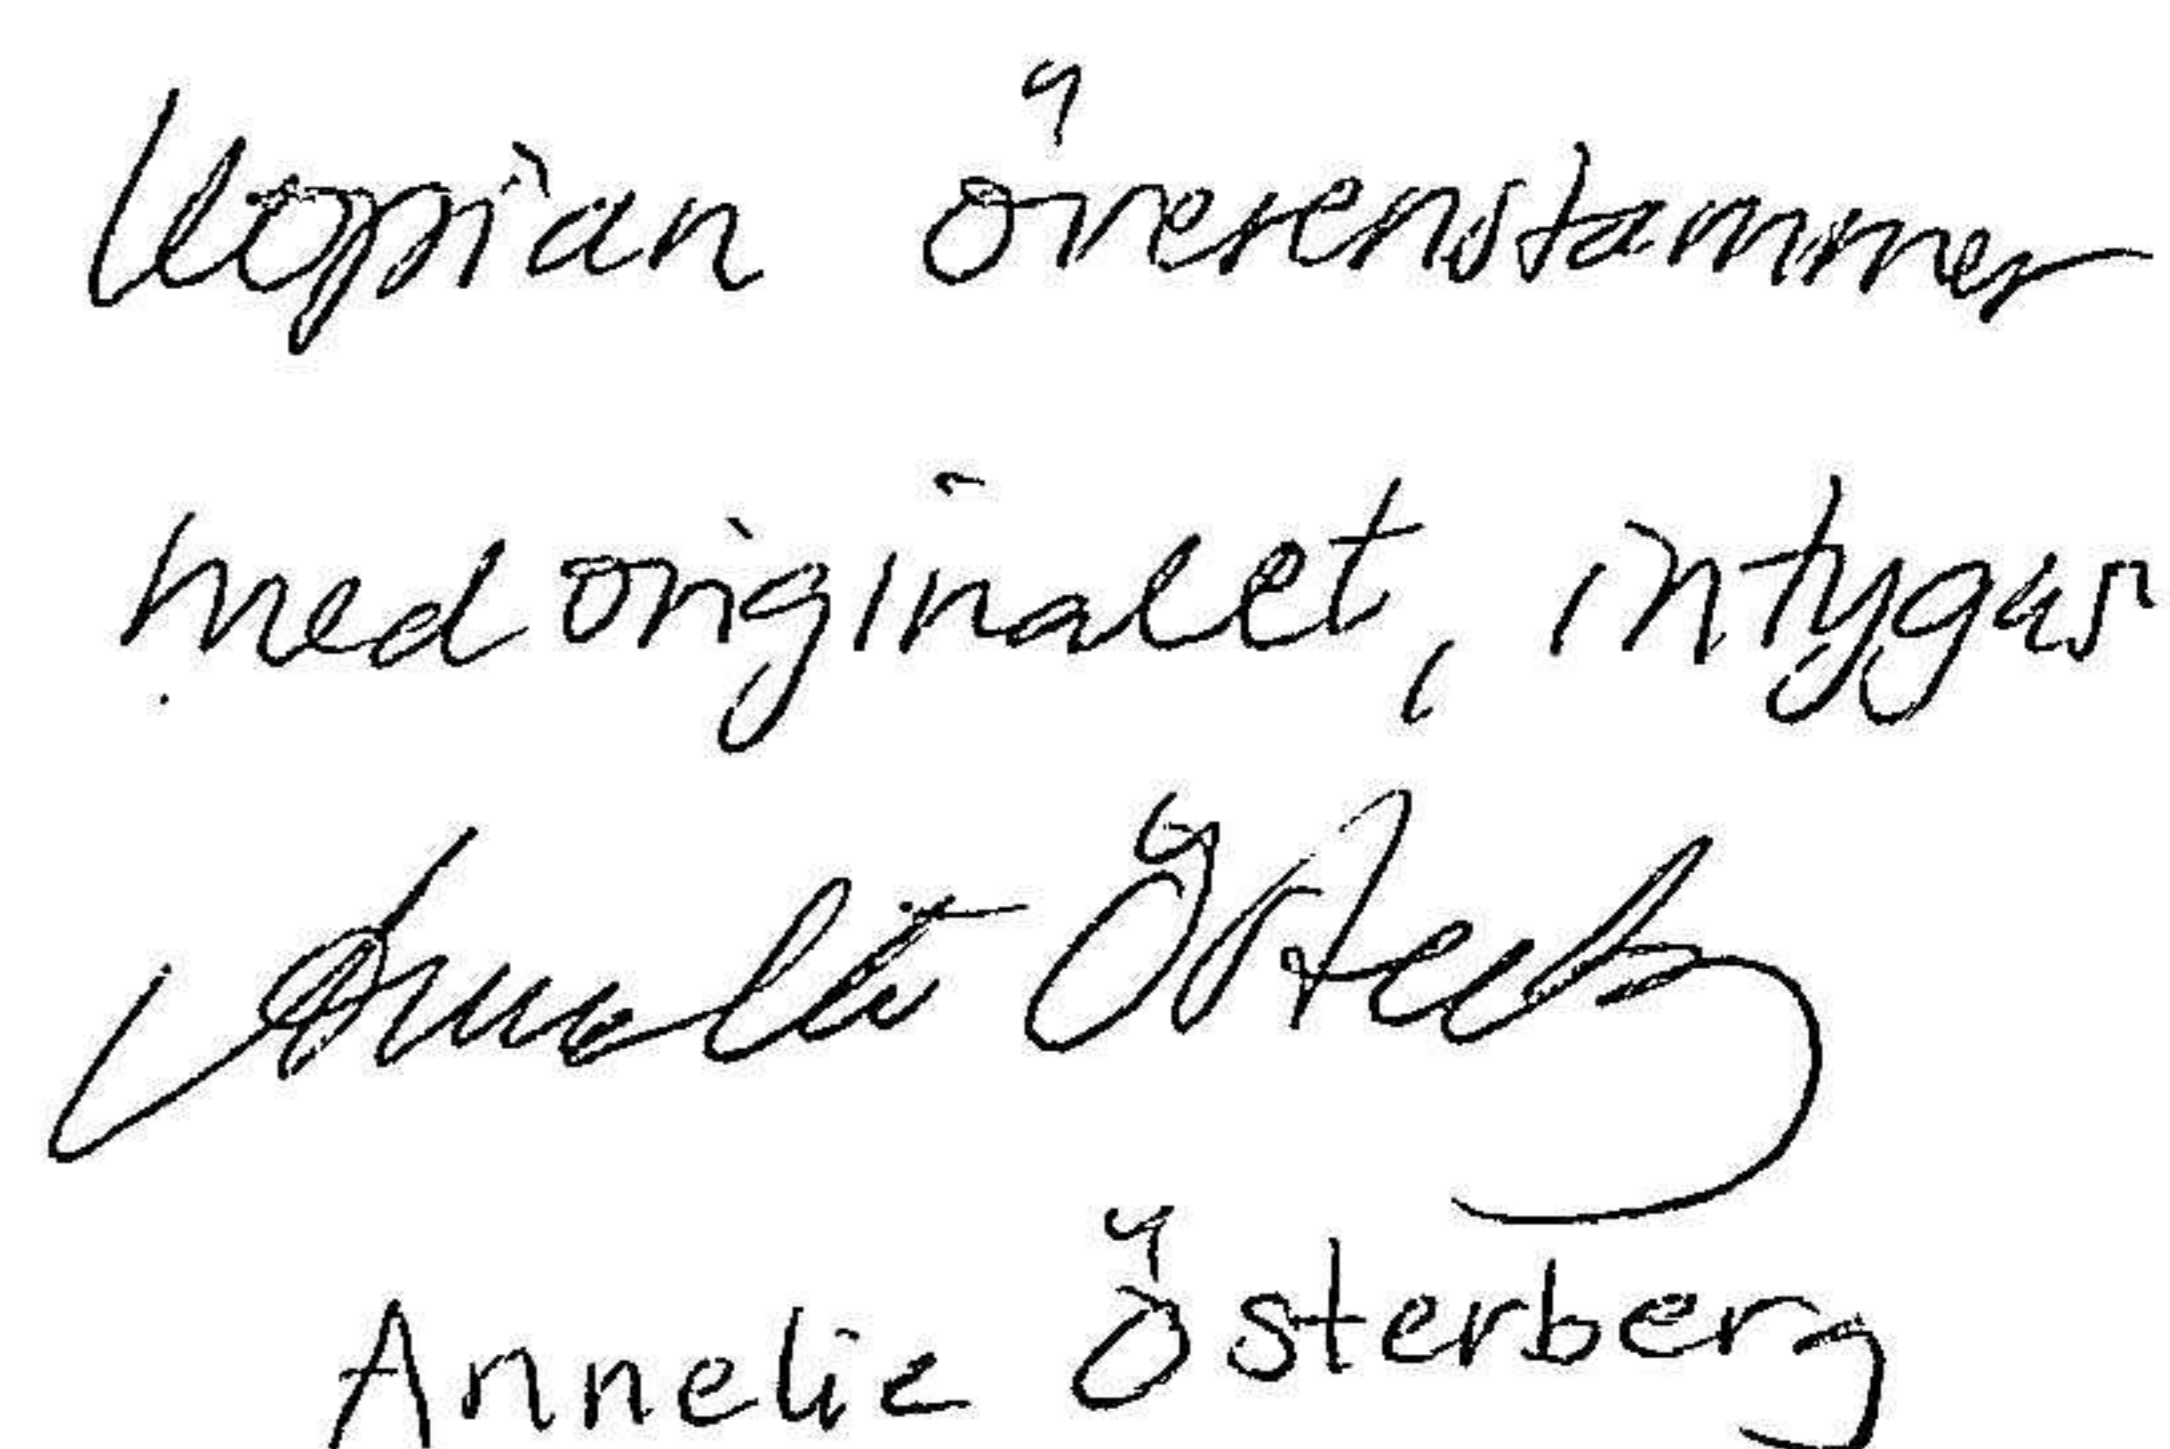 Kopian överenstämmer
med originalet, intygas
Annelie Österberg
Annelie Österberg